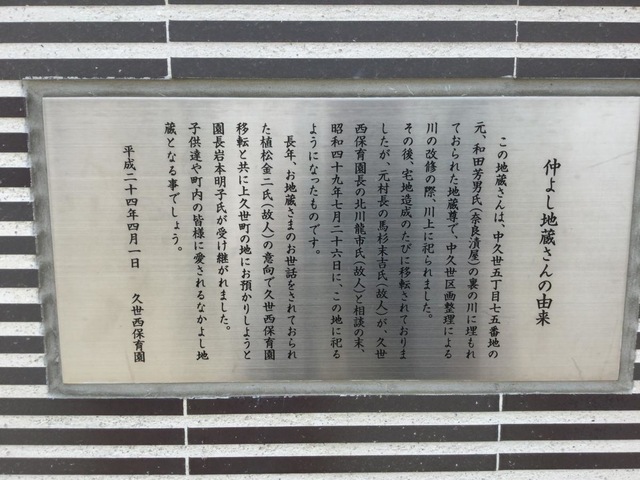 仲よし地蔵さんの由来
この地蔵さんは、中久世五丁目七五番地の
元、和田芳男氏(奈良漬屋)の裏の川に埋もれ
ておられた地蔵尊で、中久世区画整理による
川の改修の際、川上に祀られました。
その後、宅地造成のたびに移転されておりま
したが、元村長の馬杉末吉氏(故人)が、久世
西保育園長の北川龍市氏(故人)と相談の末、
昭和四十九年七月二十六日に、この地に祀る
ようになったものです。
長年、お地蔵さまのお世話をされておられ
た植松金二氏(故人)の意向で久世西保育園
移転と共に上久世町の地にお預かりしようと
園長岩本明子氏が受け継がれました。
子供達や町内の皆様に愛されるなかよし地
蔵となる事でしょう。
平成二十四年四月一日 久世西保育園